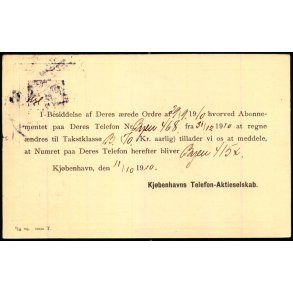 I Besiddelse af Deres ærede Ordre af 29/9 1910 hvorved Abonne-
mentet paa Deres Telefon Nr. Byen 468 fra 31/12 1910 at regne
ændres til Takstklasse B. 150 Kr. aarlig) tillader vi os at meddele,
at Numret paa Deres Telefon herefter bliver Byen 415x.
Kjøbenhavn, den 11/10 1910.
Kjøbenhavns Telefon-Aktieselskab.